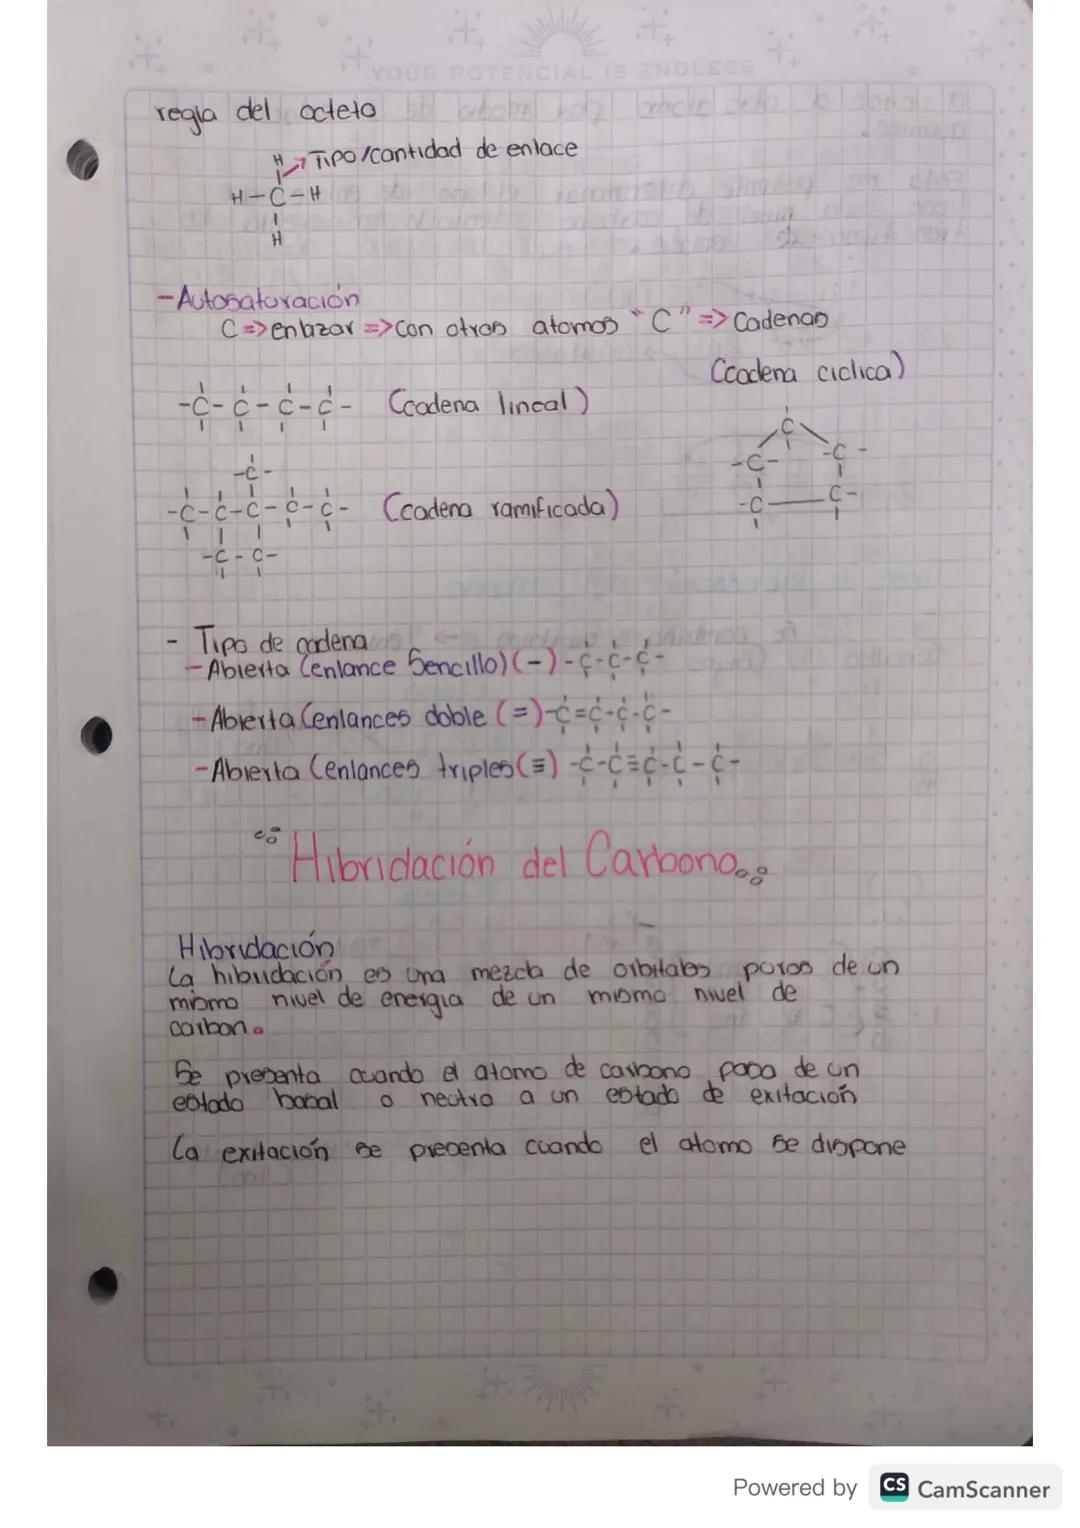 YOUR POTENCIAL IS ENDLESS
regla del octeto
H → Tipo/cantidad de enlace
H-C-H
H
-Autosaturación
C=>enlazar=>con otros atomos "C"=>Cadenas
(cadena ciclica)
-C-C-C-C- (cadena lineal)
C
-C- -C-
-C-
-C-C-C-C-C- (cadena ramificada)
-C — C-
-C-C-
- Tipo de cadena
-Abierta (enlance Sencillo)(-)-C-C-C-
-Abierta (enlances doble (=)-C=C-C-C-
-Abierta (enlances triples(≡) -C-C≡C-C-C-
Hibridación del Carbono
Hibridación
La hibridación es una mezcla de orbitales puros de un
mismo nivel de energia de un mismo nivel de
carbon.
Se presenta cuando el atomo de carbono pasa de un
estado basal o neutro a un estado de exitación
La exitación se presenta cuando el atomo se dispone
Powered by CS CamScanner